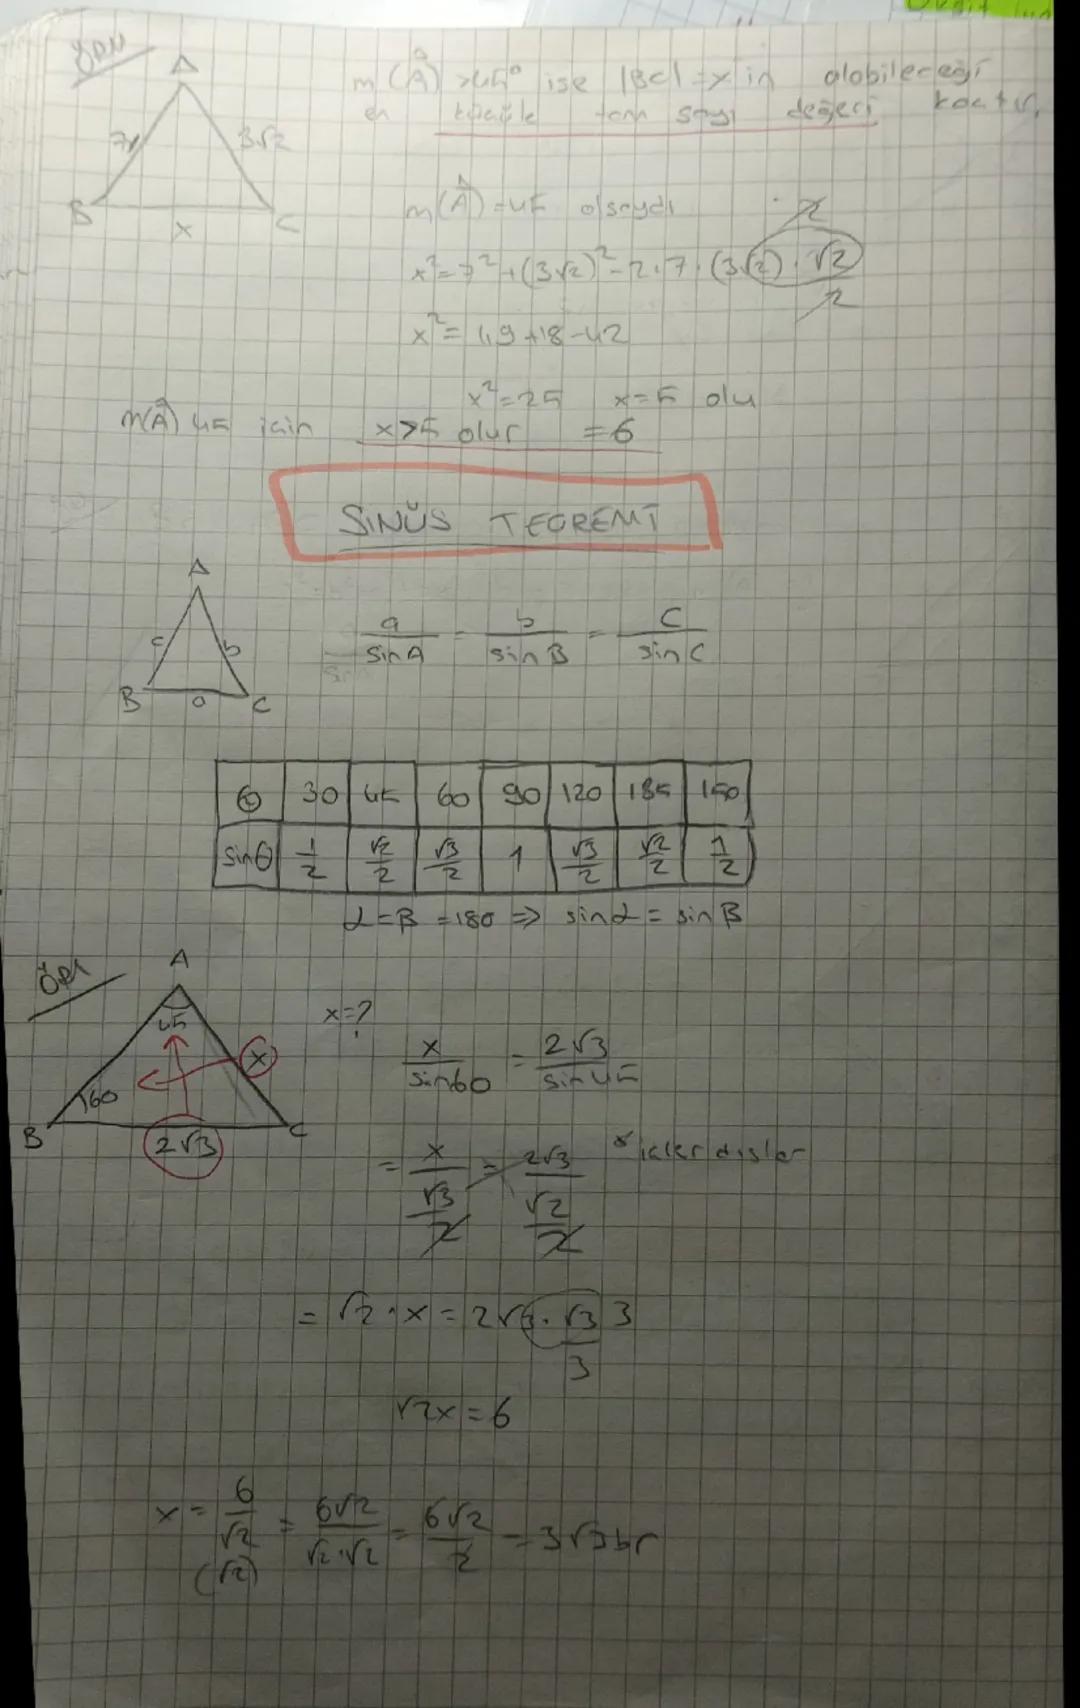 ÖRN
A
7
3√2
B
x
C
m(Â) >45° ise |BC|=x in alabileceği
en küçük tam sayı değeri kaçtır.
m(Â)=45 olsaydı
x²=7²+(3√2)²-2·7·(3√2)·√2
2
2
x²=49+18-42
x²=25 x=5 olu
m(Â) 45 için x>5 olur =6
SINÜS TEOREMİ
A
c
b
B
a
C
a/sinA = b/sinB = c/sinC
θ 30 45 60 90 120 135 150
sinθ 1/2 √2/2 √3/2 1 √3/2 √2/2 1/2
α=B=180 => sinα = sinB
ÖRN
A
45
x
60
B
2√3
C
x=?
x/sin60 = 2√3/sin45
= x/(√3/2) = 2√3/(√2/2) *içler dışlar
= √2·x = 2√3·√3 3
3
√2x=6
x = 6/√2 = 6√2/√2·√2 = 6√2/2 = 3√3br
(√2)